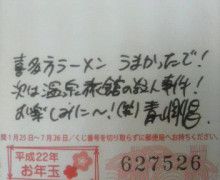 喜多方ラーメン うまかったで!
次は温泉旅館の殺人事件!
お楽しみに～!(笑) 青山剛昌
間1月25日～7月26日/くじ番号を切り取らずに郵便局へお持ちください。
平成22年
お年玉
627526